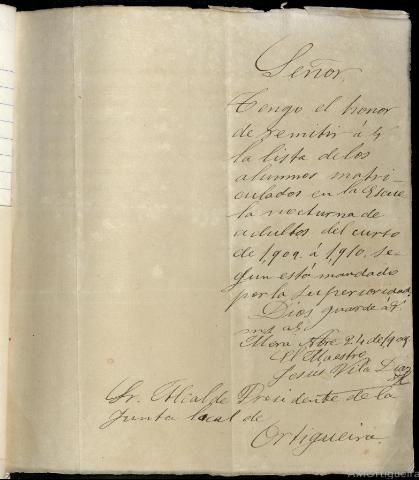 Señor.
Tengo el honor
de remitir á V
la lista de los
alumnos matri-
culados en la Escue
la nocturna de
adultos del curso
de 1909. á 1,910, se-
gun está mandado
por la superioridad.
Dios guarde á V.
ms. as.
Mera Nbre 24 de 1909
El Maestro
Jesús Vila Diaz
Sr. Alcalde Presidente de la
Junta local de
Ortigueira.
AMOrtigueira